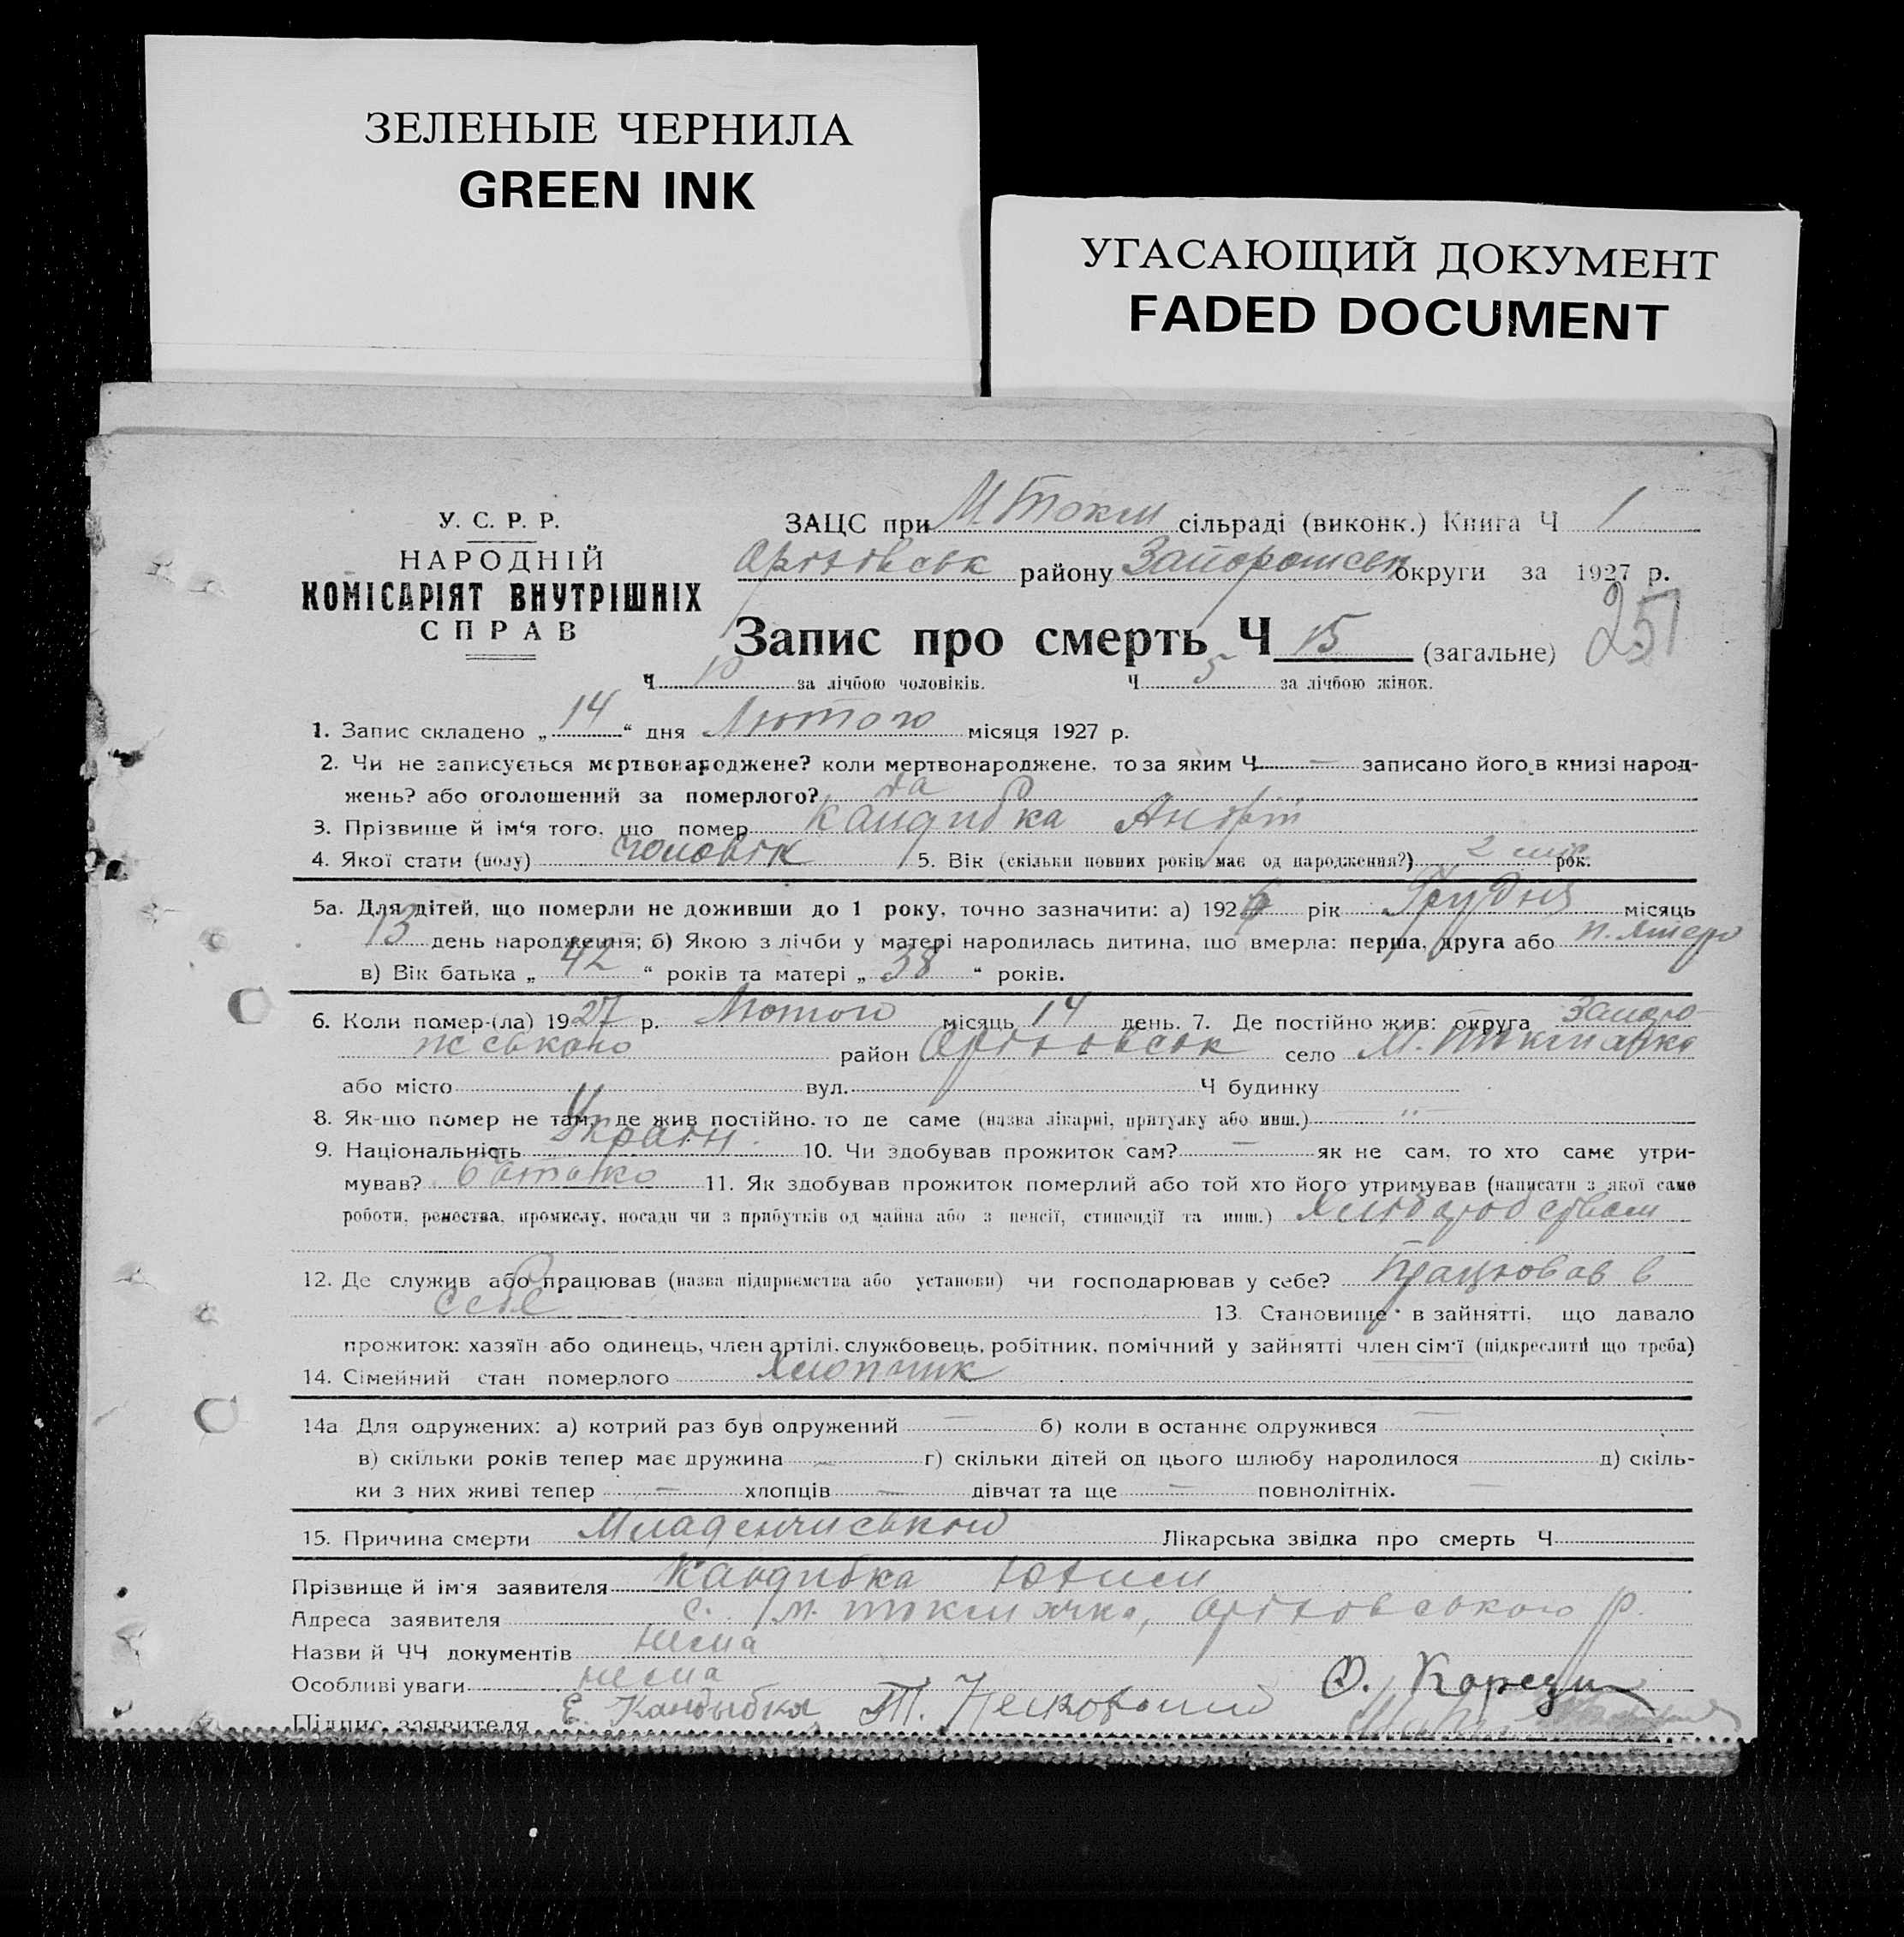 ЗЕЛЕНЫЕ ЧЕРНИЛА
GREEN INK
УГАСАЮЩИЙ ДОКУМЕНТ
FADED DOCUMENT
У. С. Р. Р.
НАРОДНІЙ
КОМІСАРІЯТ ВНУТРІШНІХ
СПРАВ
ЗАЦС при М Токм сільраді (виконк.) Книга Ч 1
Оріхівськ району Запорожськ округи за 1927 р.
Запис про смерть Ч 15 (загальне) 251
Ч 10 за лічбою чоловіків. Ч 5 за лічбою жінок.
1. Запис складено „ 14 “ дня Лютого місяця 1927 р.
2. Чи не записується мертвонароджене? коли мертвонароджене, то за яким Ч — записано його в книзі народ-
жень? або оголошений за померлого? да
3. Прізвище й ім‘я того, що помер Кандибка Андрій
4. Якої стати (полу) Чоловік 5. Вік (скільки повних років має од народження?) 2 міс рок.
5а. Для дітей, що померли не доживши до 1 року, точно зазначити: а) 1926 рік Грудня місяць
13 день народження; б) Якою з лічби у матері народилась дитина, що вмерла: перша, друга або
в) Вік батька „ 42 “ років та матері „ 38 “ років.
6. Коли помер-(ла) 1927 р. Лютого місяць 14 день. 7. Де постійно жив: округа Запоро-
жського район Оріховськ село М. Токмачка
або місто вул. Ч будинку
8. Як-що помер не там, де жив постійно, то де саме (назва лікарні, притулку або инш.) — " —
9. Національність Україн. 10. Чи здобував прожиток сам? — як не сам, то хто саме утри-
мував? батько 11. Як здобував прожиток померлий або той хто його утримував (написати з якої само
роботи, ремества, промислу, посади чи з прибутків од майна або з пенсії, стипендії та инш.) Хліборобством
12. Де служив або працював (назва підприємства або установи) чи господарював у себе? Працював в
себе 13. Становище в зайнятті, що давало
прожиток: хазяїн або одинець, член артілі, службовець, робітник, помічний у зайнятті член сім'ї (підкреслити що треба)
14. Сімейний стан померлого Хлопчик
14а Для одружених: а) котрий раз був одружений — б) коли в останнє одружився —
в) скільки років тепер має дружина — г) скільки дітей од цього шлюбу народилося д) скіль-
ки з них живі тепер — хлопців — дівчат та ще — повнолітніх.
15. Причина смерти Младенчиською Лікарська звідка про смерть Ч
Прізвище й ім'я заявителя Кандибка Юхим
Адреса заявителя с. М. Токмачка, Оріховського р.
Назви й ЧЧ документів нема
Особливі уваги нема
Підпис заявителя Е. Кандыбка